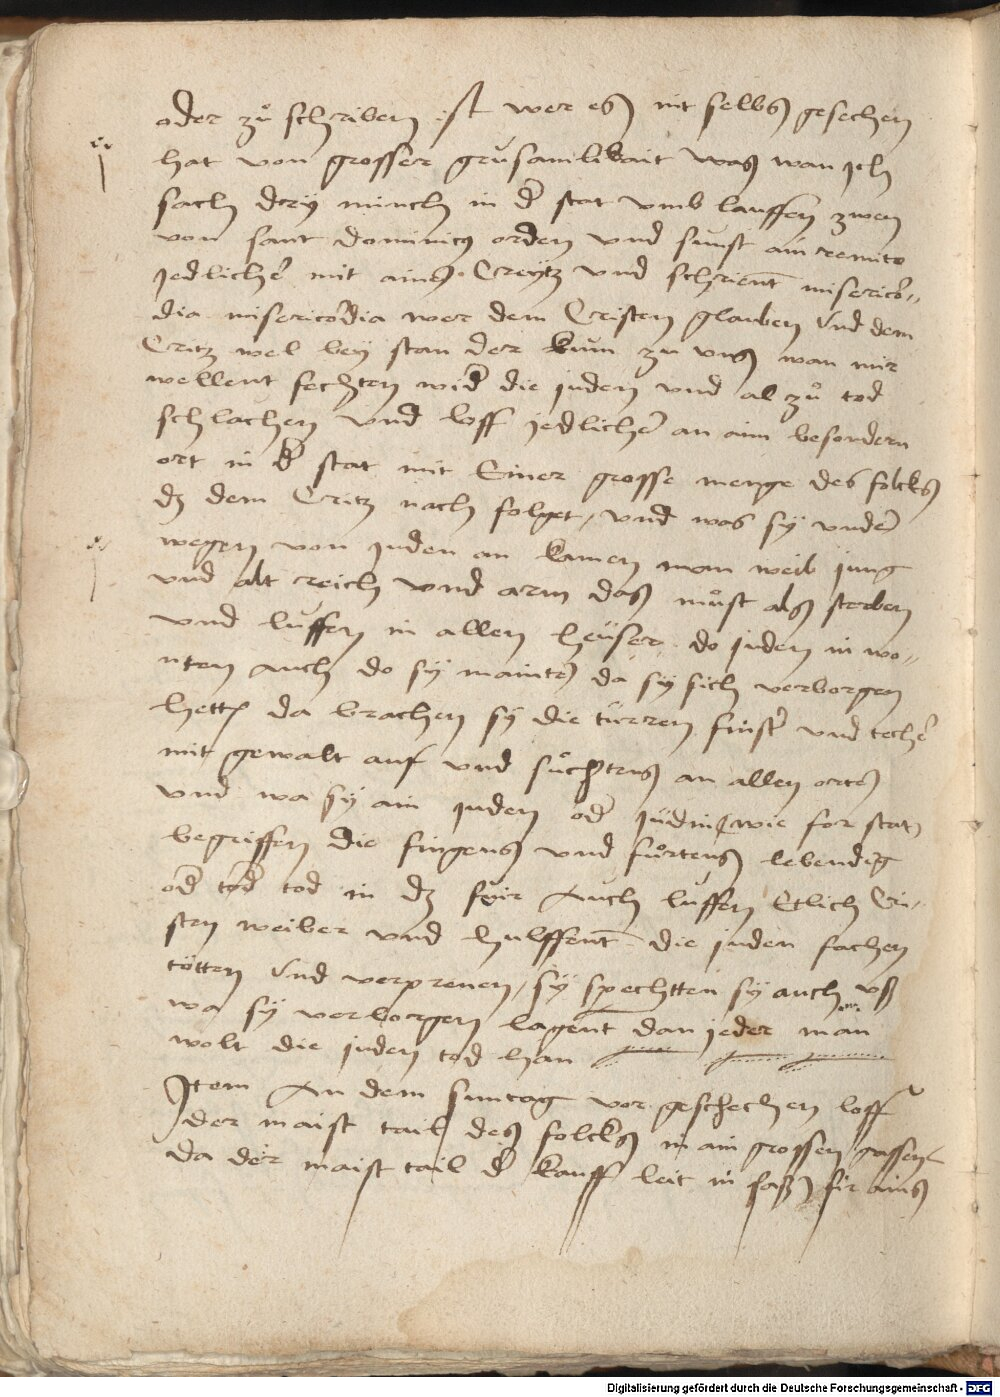 oder zů schriben ist wer es nit selbs gesechen
hat von grosser grusamlikait was wan ich
sach drey minch in dr stat umb lauffen zwen
von sant dominicus orden und sunst ain remite
jedlicher mit aim Creytz und schrient misericor-
dia misericordia wer dem Cristen glauben und dem
Critz wel bey stan der kum zu uns wan mir
wellent fechten wider die juden und al zů tod
schlachen und loff jedlicher an aim besondern
ort in dr stat mit Einer grosse menge des folcks
dz dem Critz nach folget, und was sy under
wegen von Juden an kamen man weib jung
und alt reich und arm das můst als sterben
und luffen in allen heüser do juden in wo-
nten auch do sy mainten da sy sich verborgen
hetten da brachen sy die türren finster und techer
mit gewalt auf und sůchtens an allen orten
und wa sy ain Juden oder Jüdin wie for stat
begriffen die fingens und fůrtens lebendig
oder tod in dz feir Auch luffen Etlich Cri-
sten weiber und hulffent die juden fachen
tötten und verprenen, sy spechtten sy auch uß
wa sy verborgen lagent dan jeder man
wolt die juden tod han
Item An dem suntag vor geschechen loff
der maist tail des folcks in ain grossen gassen
da der maist tail dr kauff leit in saß fir ains
Digitalisierung gefördert durch die Deutsche Forschungsgemeinschaft - DFG